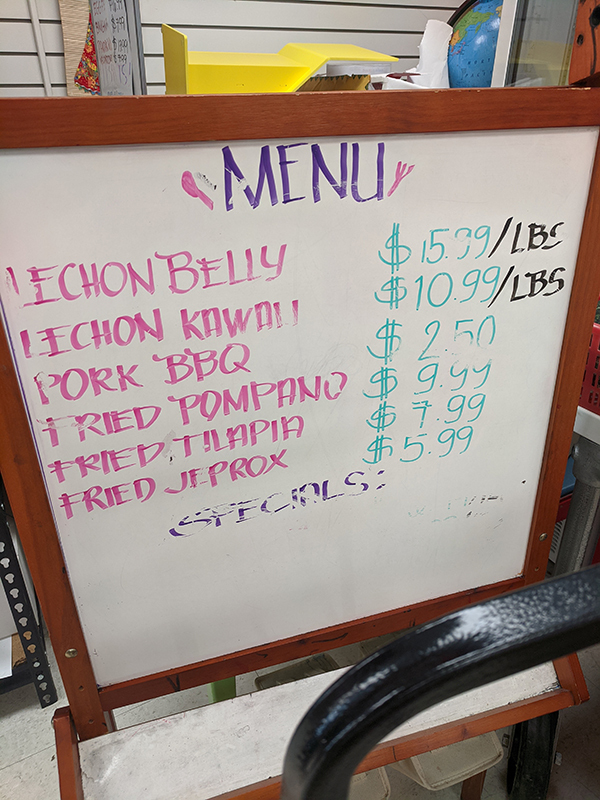 MENU
LECHON BELLY $15.99/LBS
LECHON KAWALI $10.99/LBS
PORK BBQ $2.50
FRIED POMPANO $9.99
FRIED TILAPIA $7.99
FRIED JEPROX $5.99
SPECIALS: